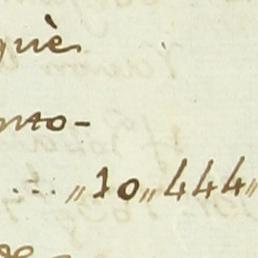 què
nto-
... „10„444„